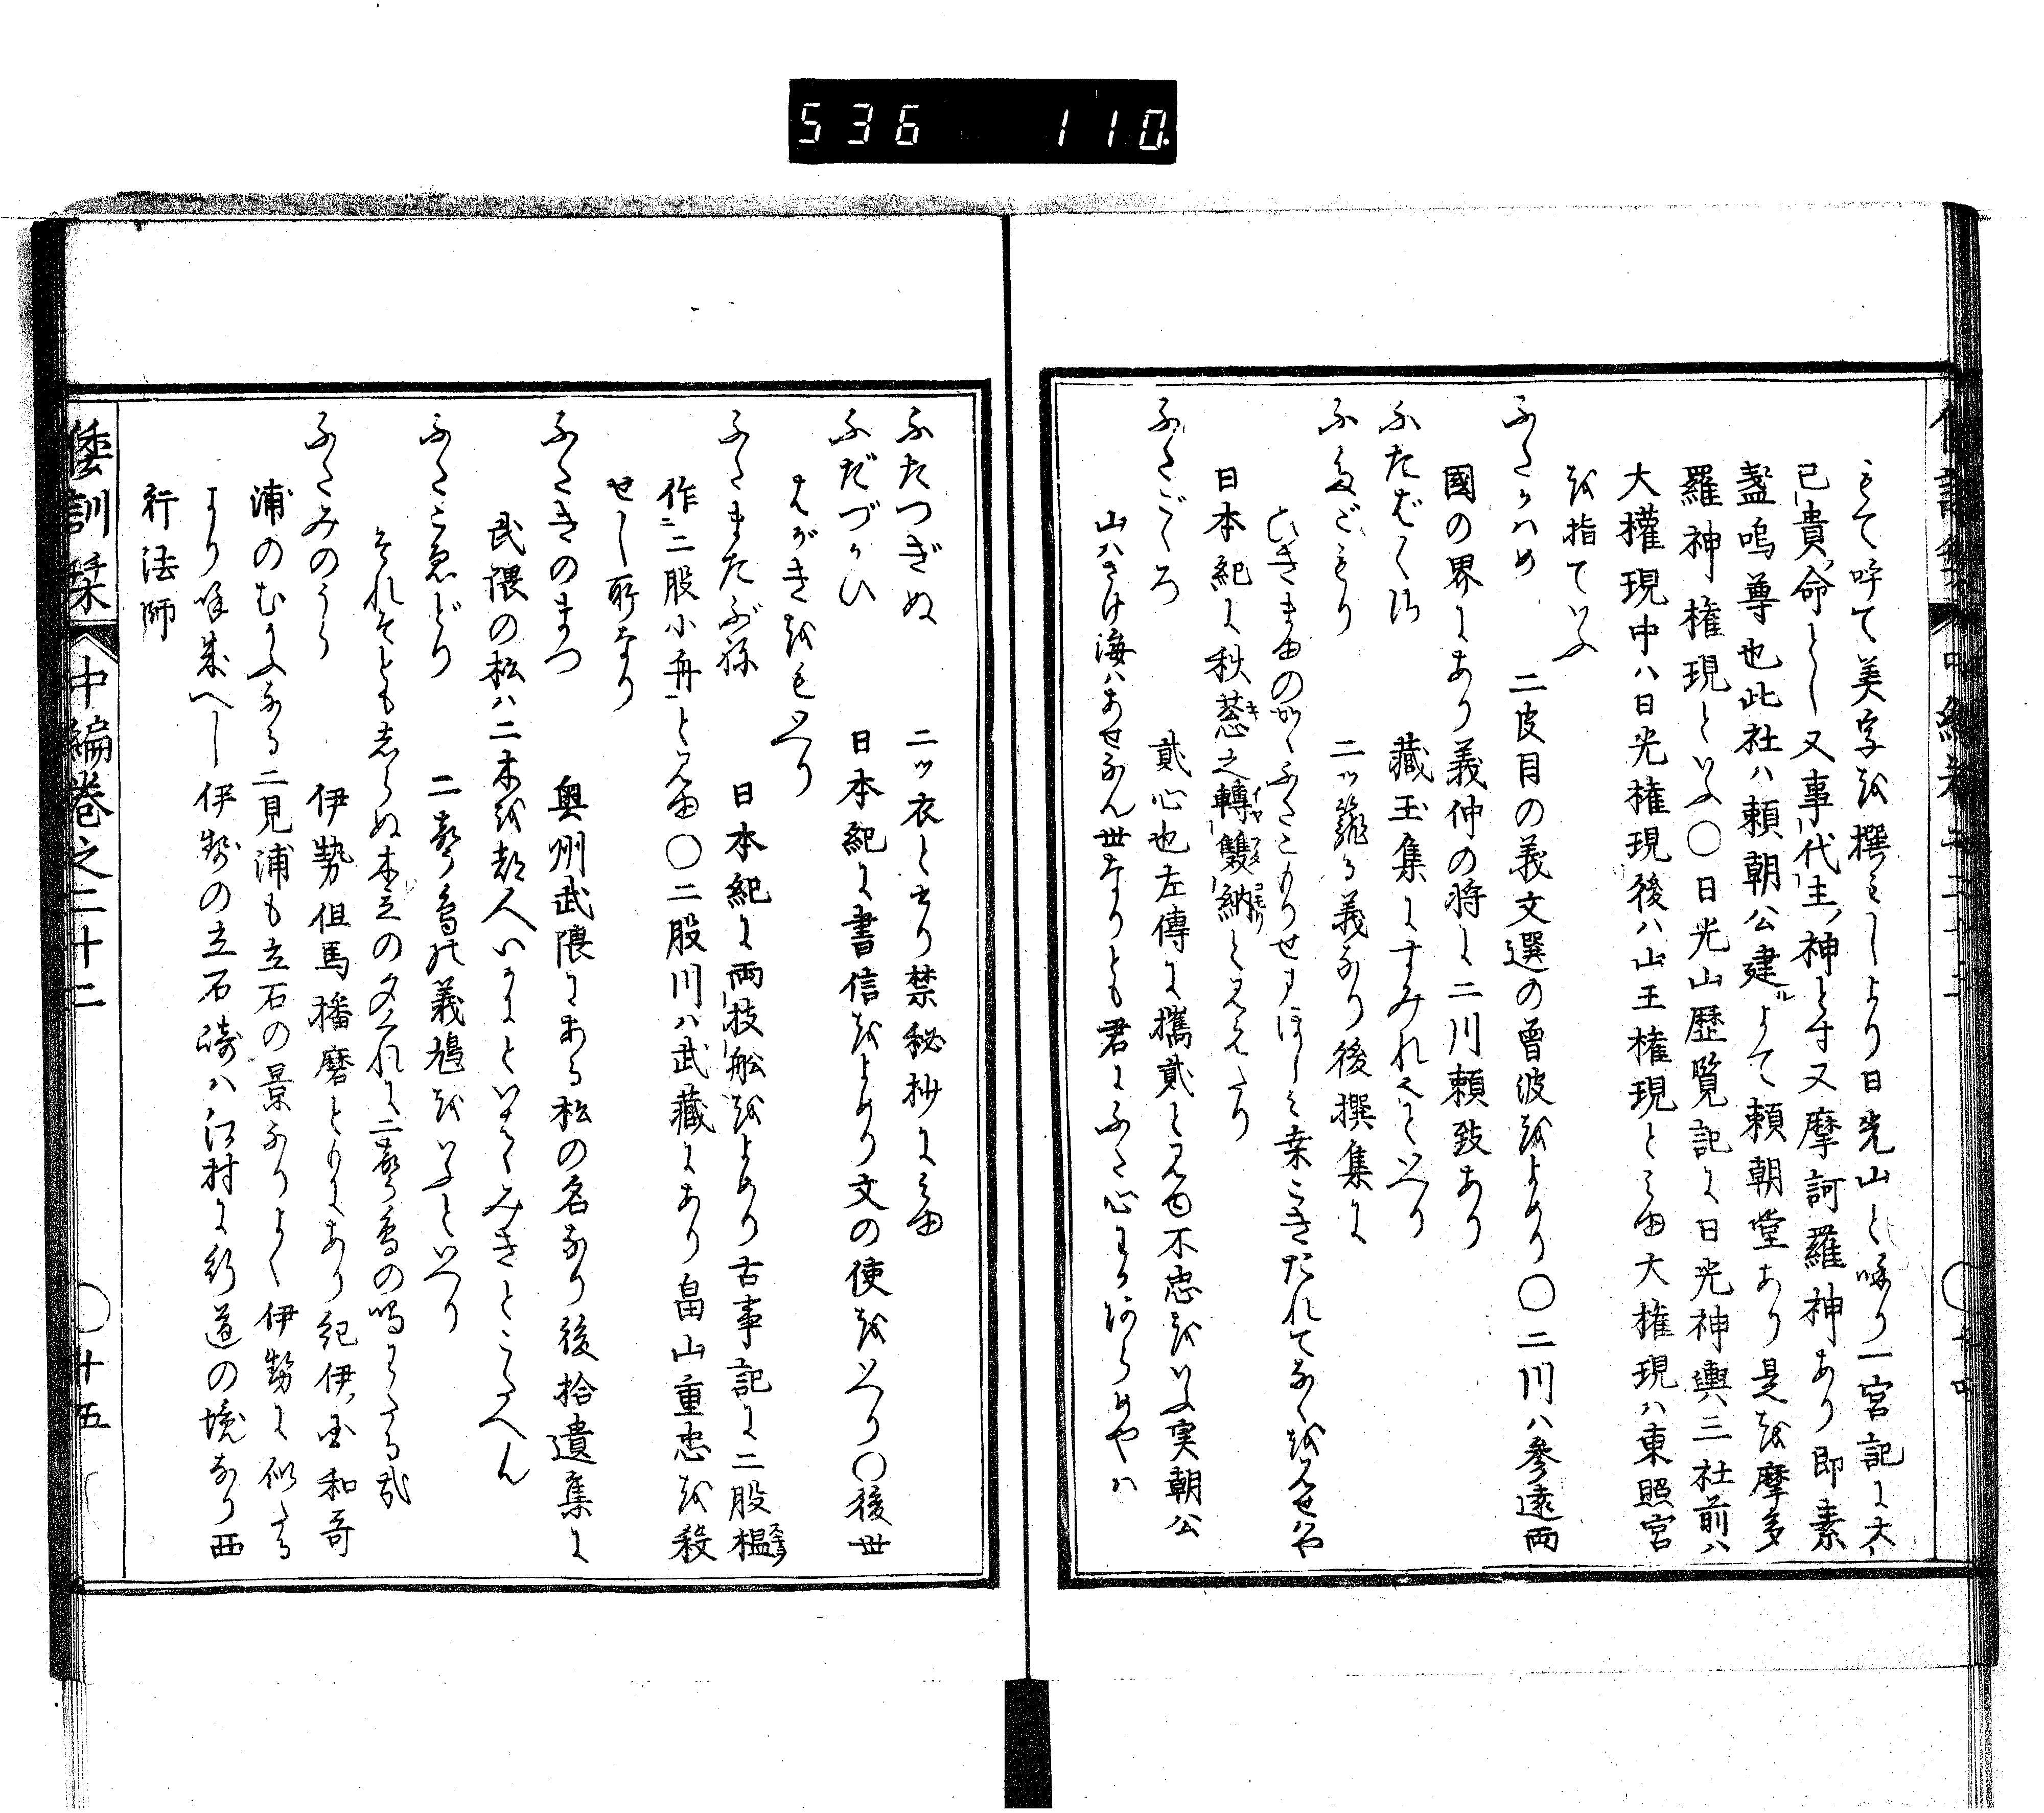 536 110
もて呼て美字を撰みしより日光山と唱り一宮記に大
己貴命とし又事代主神とす又摩訶羅神あり即素
盞嗚尊也此社ハ頼朝公建ルよて頼朝堂あり是を摩多
羅神権現といふ〇日光山歴覧記に日光神輿三社前ハ
大權現中ハ日光権現後ハ山王権現とみゆ大権現ハ東照宮
を指ていふ
ふたかハめ 二皮目の義文選の曾波をよめり〇二川ハ參遠両
國の界にあり義仲の時に二川頼致あり
ふたばくさ 藏玉集にすみれ也といへり
ふたごもり 二ッ籠る義なり後撰集に
ひきまゆのかくふたこもりせまほしみ桒こきたれてなくをみせはや
日本紀に秩莶之轉雙納とみえたり
ふたごゝろ 貳心也左傳に攜貳とみゆ不忠をいふ実朝公
山ハさけ海ハあせなん世なりとも君にふた心わかあらめやハ
ふたつぎぬ 二ッ衣とせり禁秘抄にみゆ
ふだづかひ 日本紀に書信をよめり文の使をいへり〇後世
はがきをもいへり
ふたまたぶね 日本紀に両枝舩をよめり古事記に二股榲
作ニ二股小舟一とみゆ〇二股川ハ武藏にあり畠山重忠を殺
せし所なり
ふたきのまつ 奥州武隈にある松の名なり後拾遺集に
武隈の松ハ二木を都人いかにといはゝみきとこたへん
ふたこゑどり 二声鳥の義鳩をいふといへり
それをとも志らぬ木立の夕くれに二声鳥の鳴わたる哉
ふたみのうら 伊勢但馬播磨ともにあり紀伊国和哥
浦のむかふなる二見浦も立石の景なりよく伊勢に似たる
より唱来へし伊勢の立石崎ハ江村に行道の境なり西
行法師
倭訓栞 中編巻之二十二 〇十五